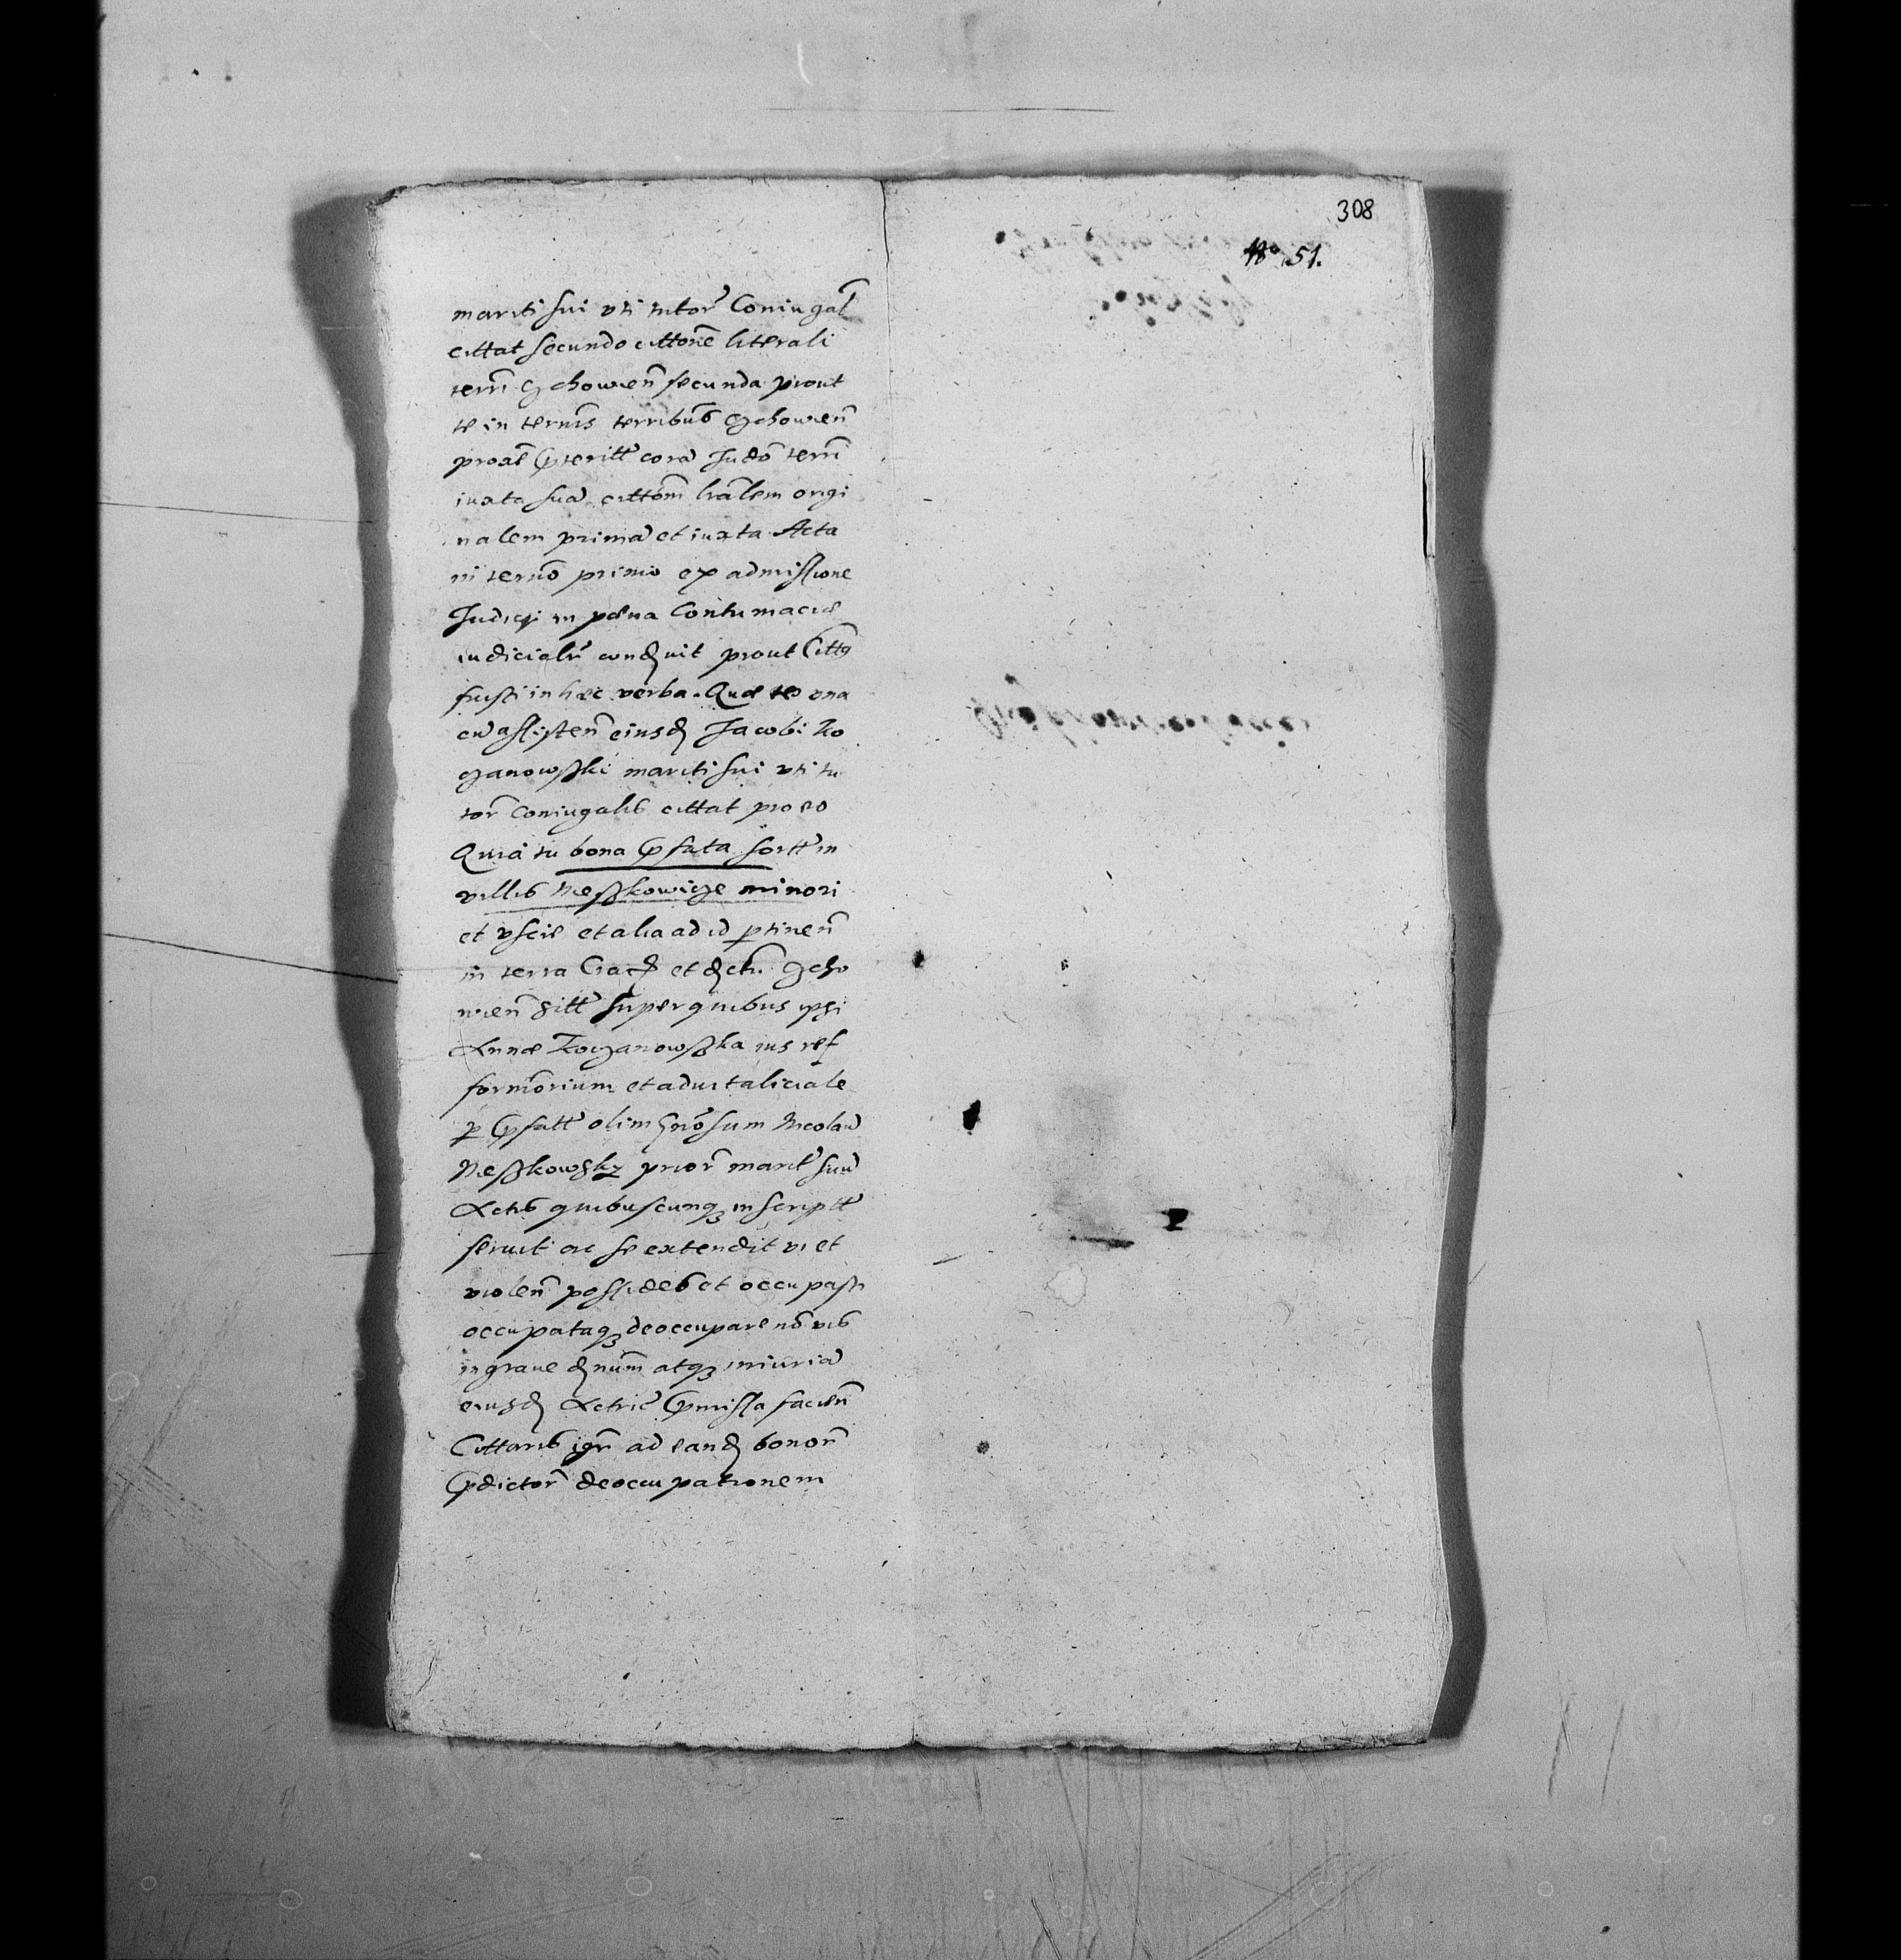 308
No 51.
mariti sui uti tutor Coniugal
cittat secundo cittone literali
terri Czchowien secunda prout
te in ternis terribus Czchowien
proxe pteritt cora Judo terri
iuxta sua cittom lralem origi
nalem prima et iuxta Acta
in terno primo ex admissione
Judicij in pœna Contumaciæ
iudicialr condnit prout Citty
fuisti in hæc verba. Quæ te una
cu assisten eiusd Jacobi Ko
czanowski mariti sui uti tu
tor coniugalis cittat pro eo
Quia tu bona pfata sortt in
villis Meszkowicze minori
et Uscie et alia ad id ptinen
in terra Crac et dctu Czcho
wien sitt super quibus ipsi
Annæ Koczanowska ius ref
formorium et aduitaliciale
p pfatt olim Gnosum Nicolau
Meszkowsky prior marit suu
Actis quibuscunq inscriptt
seruit ac se extendit vi et
violen possides et occupasti
occupataq deoccupare no vis
in graue dnum atq iniuria
eiusd Actric pmissa facien
Cittaris igr ad eand bonor
pdictor deoccupationem